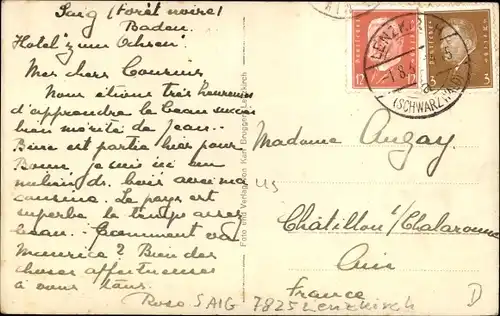 Saig (Forêt noire)
Baden.
Hotel "zum Ochsen".
Mes chers Cousins
Nous étions très heureuses
d'apprendre le beau succès
bien mérité de Jean..
est partie hier pour
je suis ici au
milieu ds. bois avec ma
cousine. Le pays est
superbe le temps assez
beau. Comment va
Maurice? Bien des
choses affectueuses
à vous tous.
Rose SAIG 7825 Lenzkirch
Foto und Verlag von Karl Bruggert, Lenzkirch
DEUTSCHES REICH
12 12
3 3
LENZKIRCH
(SCHWARZWALD)
Madame Augay
US
Châtillon s/Chalaronne
Ain
France
D